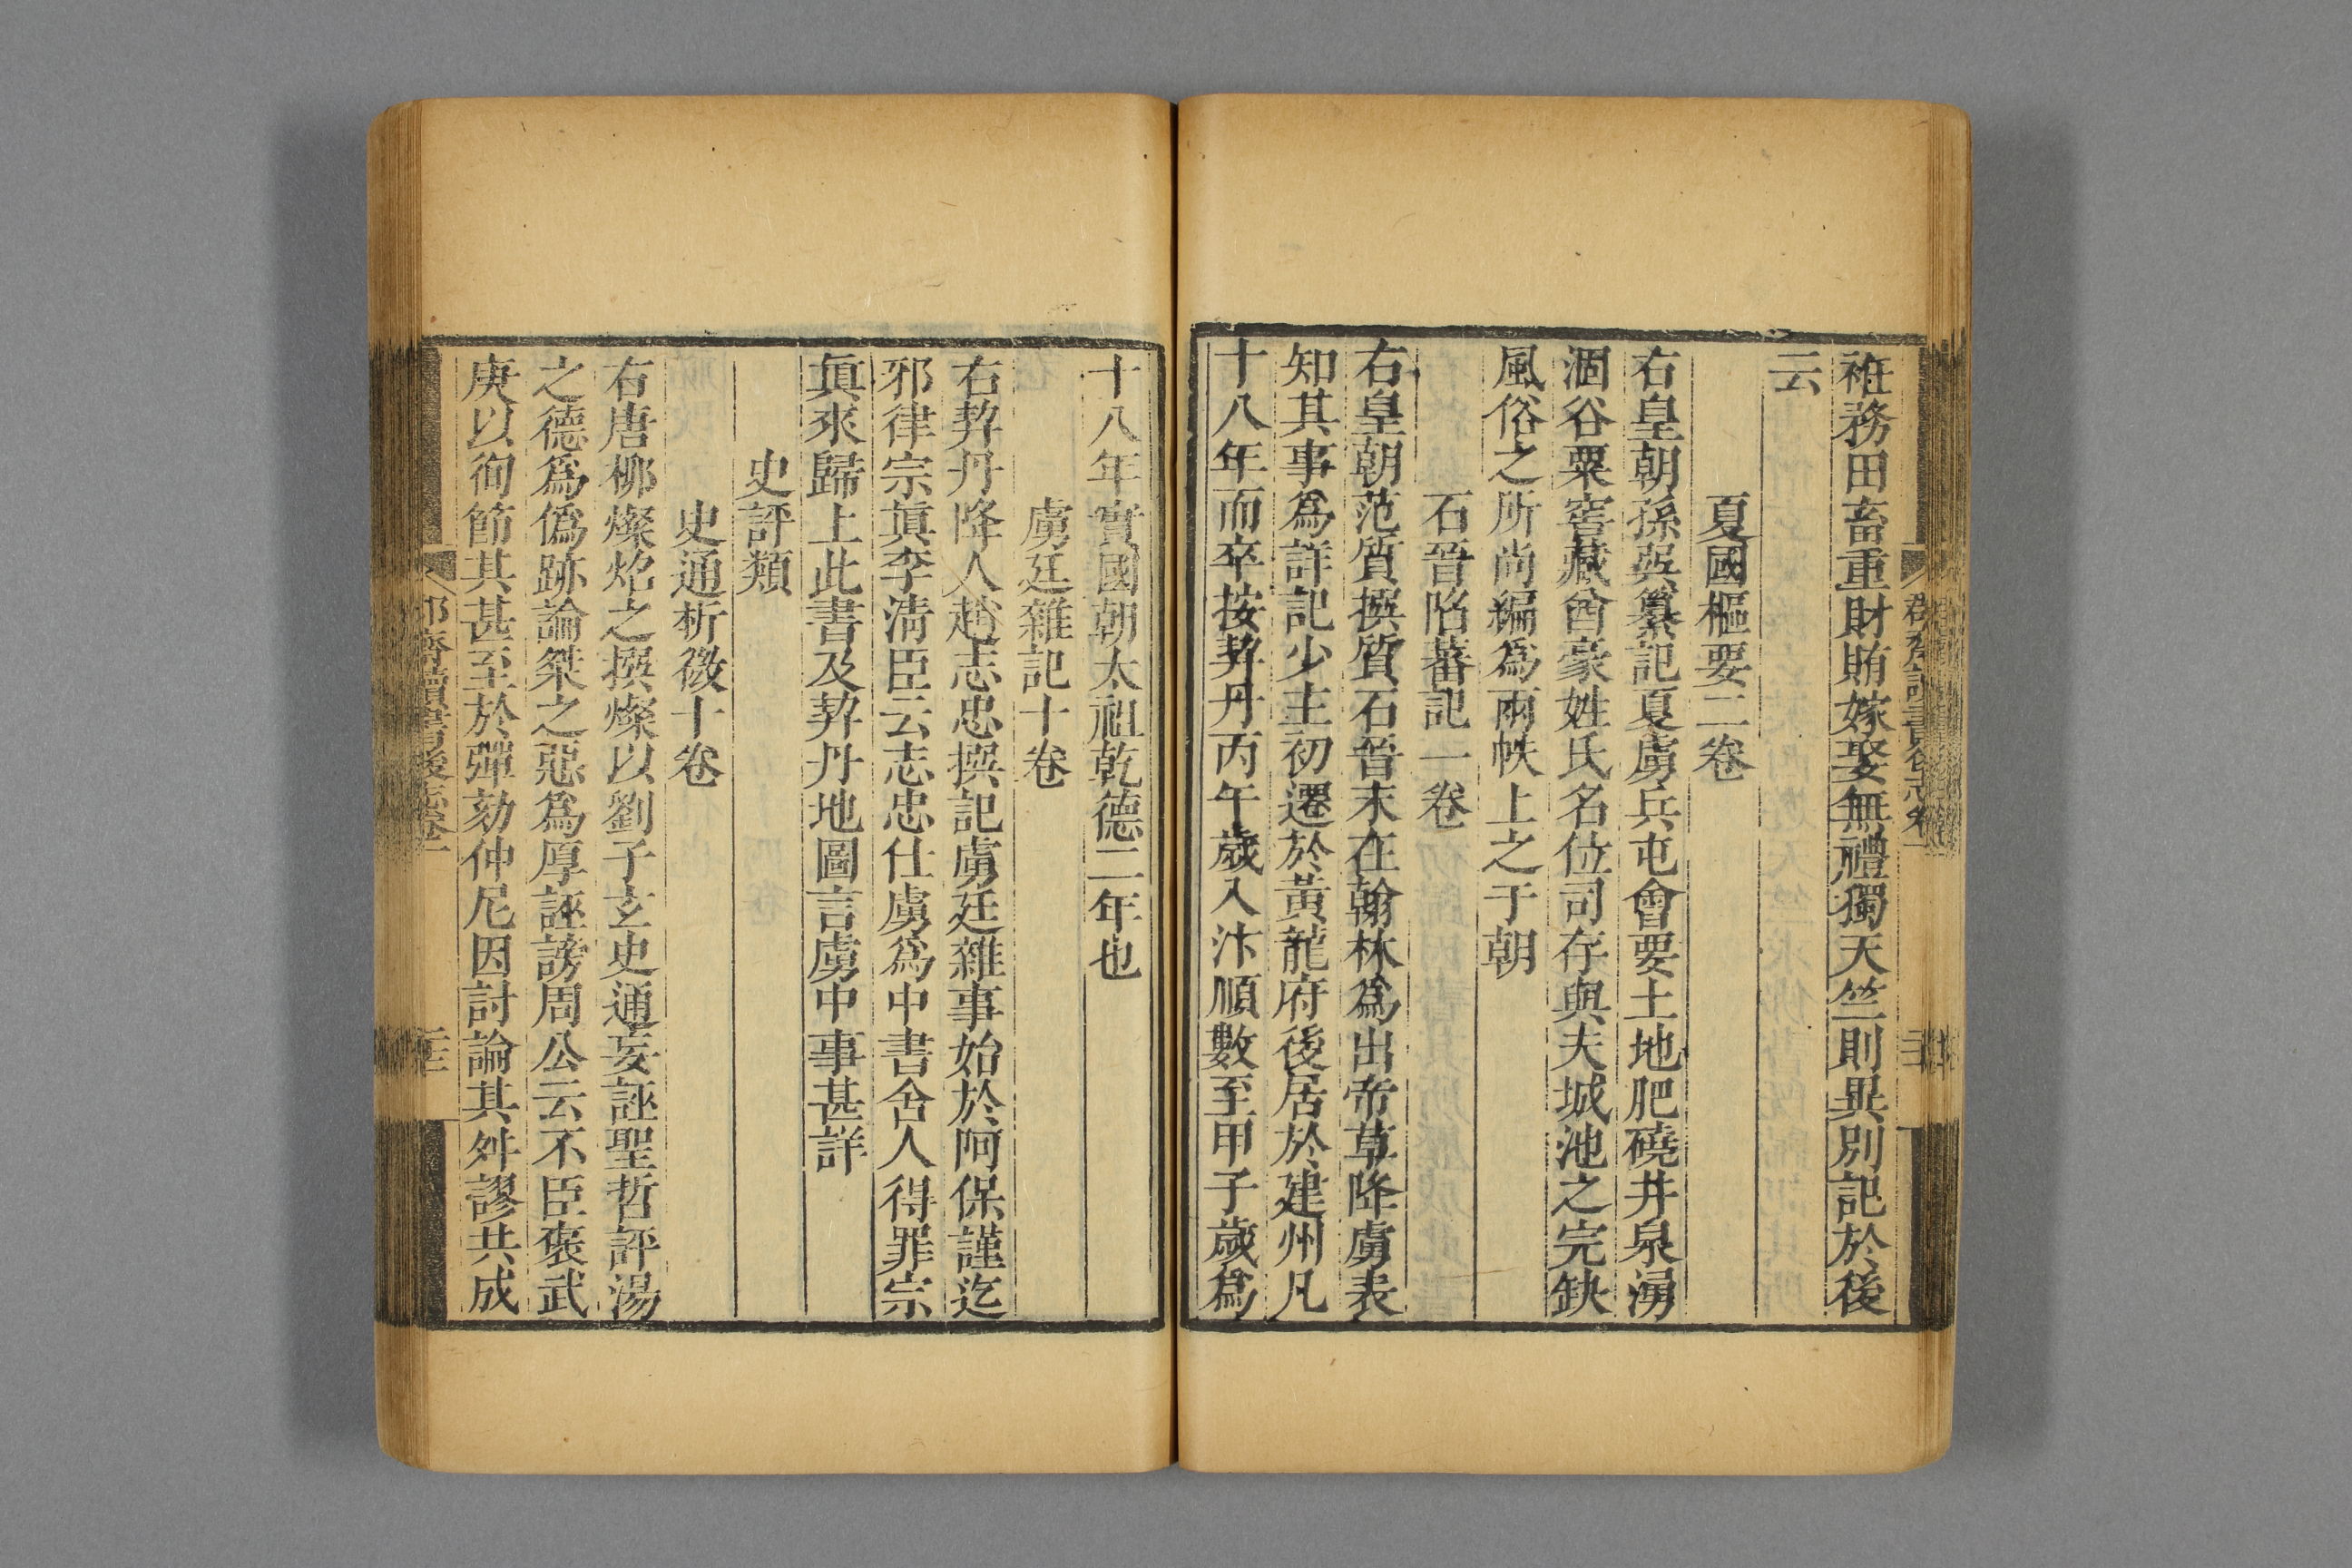 祚務田畜重財賄嫁娶無禮獨天竺則異别記於後
云
夏國樞要二卷
右皇朝孫巽纂記夏虜兵屯會要土地肥磽井泉湧
涸谷粟窖藏酋豪姓氏名位司存與夫城池之完缺
風俗之所尚編爲兩帙上之于朝
石晉陷蕃記一卷
右皇朝范質撰質石晉末在翰林爲出帝草降虜表
知其事爲詳記少主初遷於黃龍府後居於建州凡
十八年而卒按契丹丙午歲入汴順數至甲子歲爲
十八年實國朝太祖乾德二年也
虜廷雜記十卷
右契丹降人趙志忠撰記虜廷雜事始於阿保謹迄
邪律宗眞李淸臣云志忠仕虜爲中書舍人得罪宗
眞來歸上此書及契丹地圖言虜中事甚詳
史評類
史通析微十卷
右唐柳燦炤之撰燦以劉子玄史通妄誣聖哲評湯
之德爲僞跡論桀之惡爲厚誣謗周公云不臣褒武
庚以徇節其甚至於彈劾仲尼因討論其舛謬共成